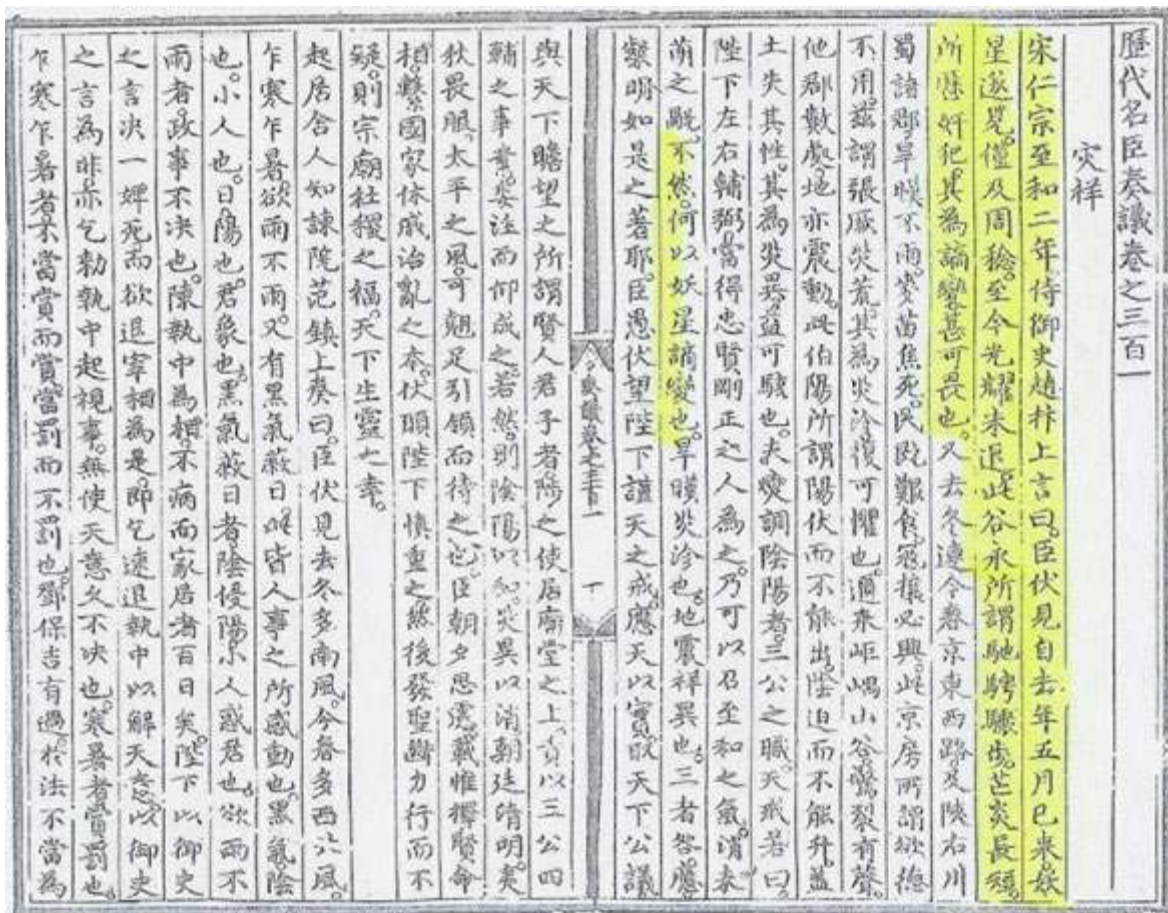 歷代名臣奏議卷之三百一
灾祥
宋仁宗至和二年侍御史趙抃上言曰臣伏見自去年五月已來妖
星遂見僅及周稔至今光耀未退此谷永所謂馳騁驟步芒炎長短
所歷奸犯其為謫變甚可畏也又去冬連今春京東西路及陝右川
蜀諸郡旱暵不雨麥苗焦死民既艱食寇攘必興此京房所謂欲德
不用茲謂張厥灾荒其為灾沴復可懼也邇來岠嵎山谷驚裂有聲
他郡數處地亦震動此伯陽所謂陽伏而不能出陰迫而不能升蓋
土失其性其為灾異益可駭也夫燮調陰陽者三公之職天戒若曰
陛下左右輔弼當得忠賢剛正之人為之乃可以召至和之氣消未
萌之眚不然何以妖星謫變也旱暵灾沴也地震祥異也三者咎應
察明如是之著耶臣愚伏望陛下謹天之戒應天以實取天下公議
奏議卷之三百一
與天下瞻望之所謂賢人君子者陟之使居廟堂之上責以三公四
輔之事業委注而仰成之若然則陰陽以和灾異以消朝廷清明夷
秋畏服太平之風可翹足引領而待之也臣朝夕思慮載惟擇賢命
相繫國家休戚治亂之本伏願陛下慎重之然後發聖斷力行而不
疑則宗廟社稷之福天下生靈之幸
起居舍人知諫院范鎮上奏曰臣伏見去冬多南風今春多西北風
乍寒乍暑欲雨不雨又有黑氣蔽日此皆人事之所感動也黑氣陰
也小人也日陽也君象也黑氣蔽日者陰侵陽小人惑君也欲雨不
雨者政事不決也陳執中為相不病而家居者百日矣陛下以御史
之言決一婢死而欲退宰相為是即乞速退執中以解天意以御史
之言為非亦乞勑執中起視事無使天意久不決也寒暑者賞罰也
乍寒乍暑者不當賞而賞當罰而不罰也鄧保吉有過於法不當為